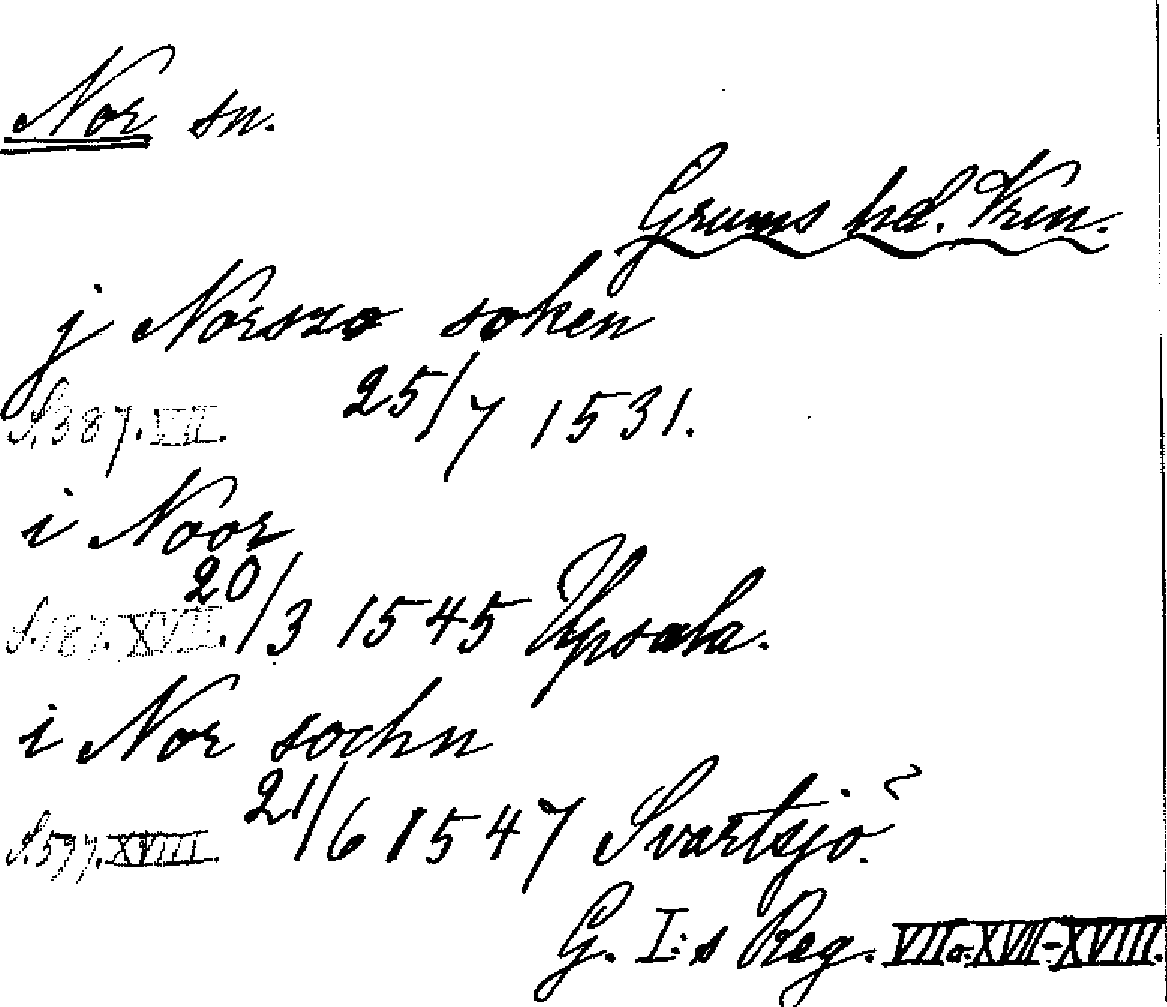 Nor sn.
Grums hd. Vrm.
j Norszo soken
S. 387. VII. 25/7 1531.
i Noor
S. 187. XVII. 20/3 1545 Upsala.
i Nor sochn
S. 577. XVIII. 21/6 1547 Svartsjö.
G. I:s Reg. VII o. XVII-XVIII.